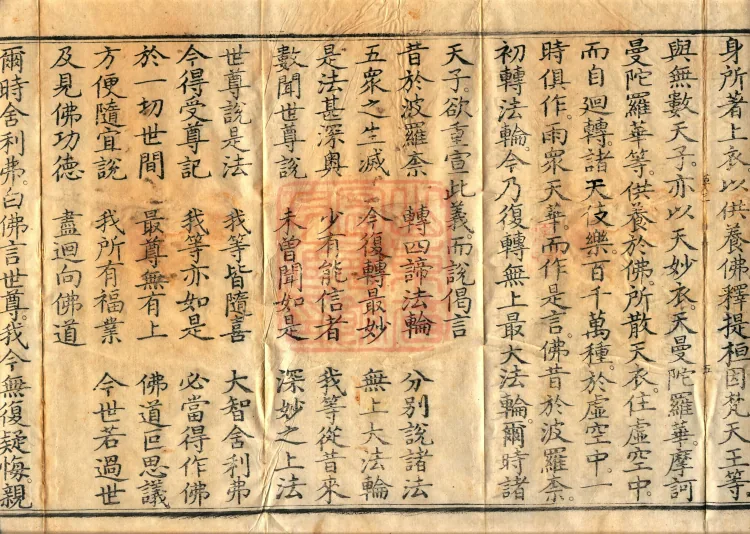 身所著上衣以供養佛釋提桓因梵天王等
與無數天子。亦以天妙衣。天曼陀羅華。摩訶
曼陀羅華等。供養於佛。所散天衣。住虛空中。
而自迴轉。諸天伎樂。百千萬種。於虛空中。一
時俱作。雨眾天華。而作是言。佛昔於波羅柰。
初轉法輪。今乃復轉無上最大法輪。爾時諸
天子。欲重宣此義。而說偈言
昔於波羅柰 轉四諦法輪 分別說諸法
五眾之生滅 今復轉最妙 無上大法輪
是法甚深奧 少有能信者 我等從昔來
數聞世尊說 未曾聞如是 深妙之上法
世尊說是法 我等皆隨喜 大智舍利弗
今得受尊記 我等亦如是 必當得作佛
於一切世間 最尊無有上 佛道叵思議
方便隨宜說 我所有福業 今世若過世
及見佛功德 盡迴向佛道
爾時舍利弗。白佛言世尊。我今無復疑悔。親